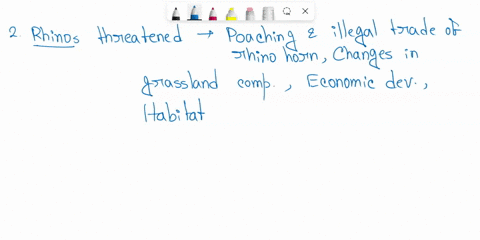 2. Rhinos threatened → Poaching & illegal trade of
rhino horn, Changes in
grassland comp., Economic dev.,
Habitat